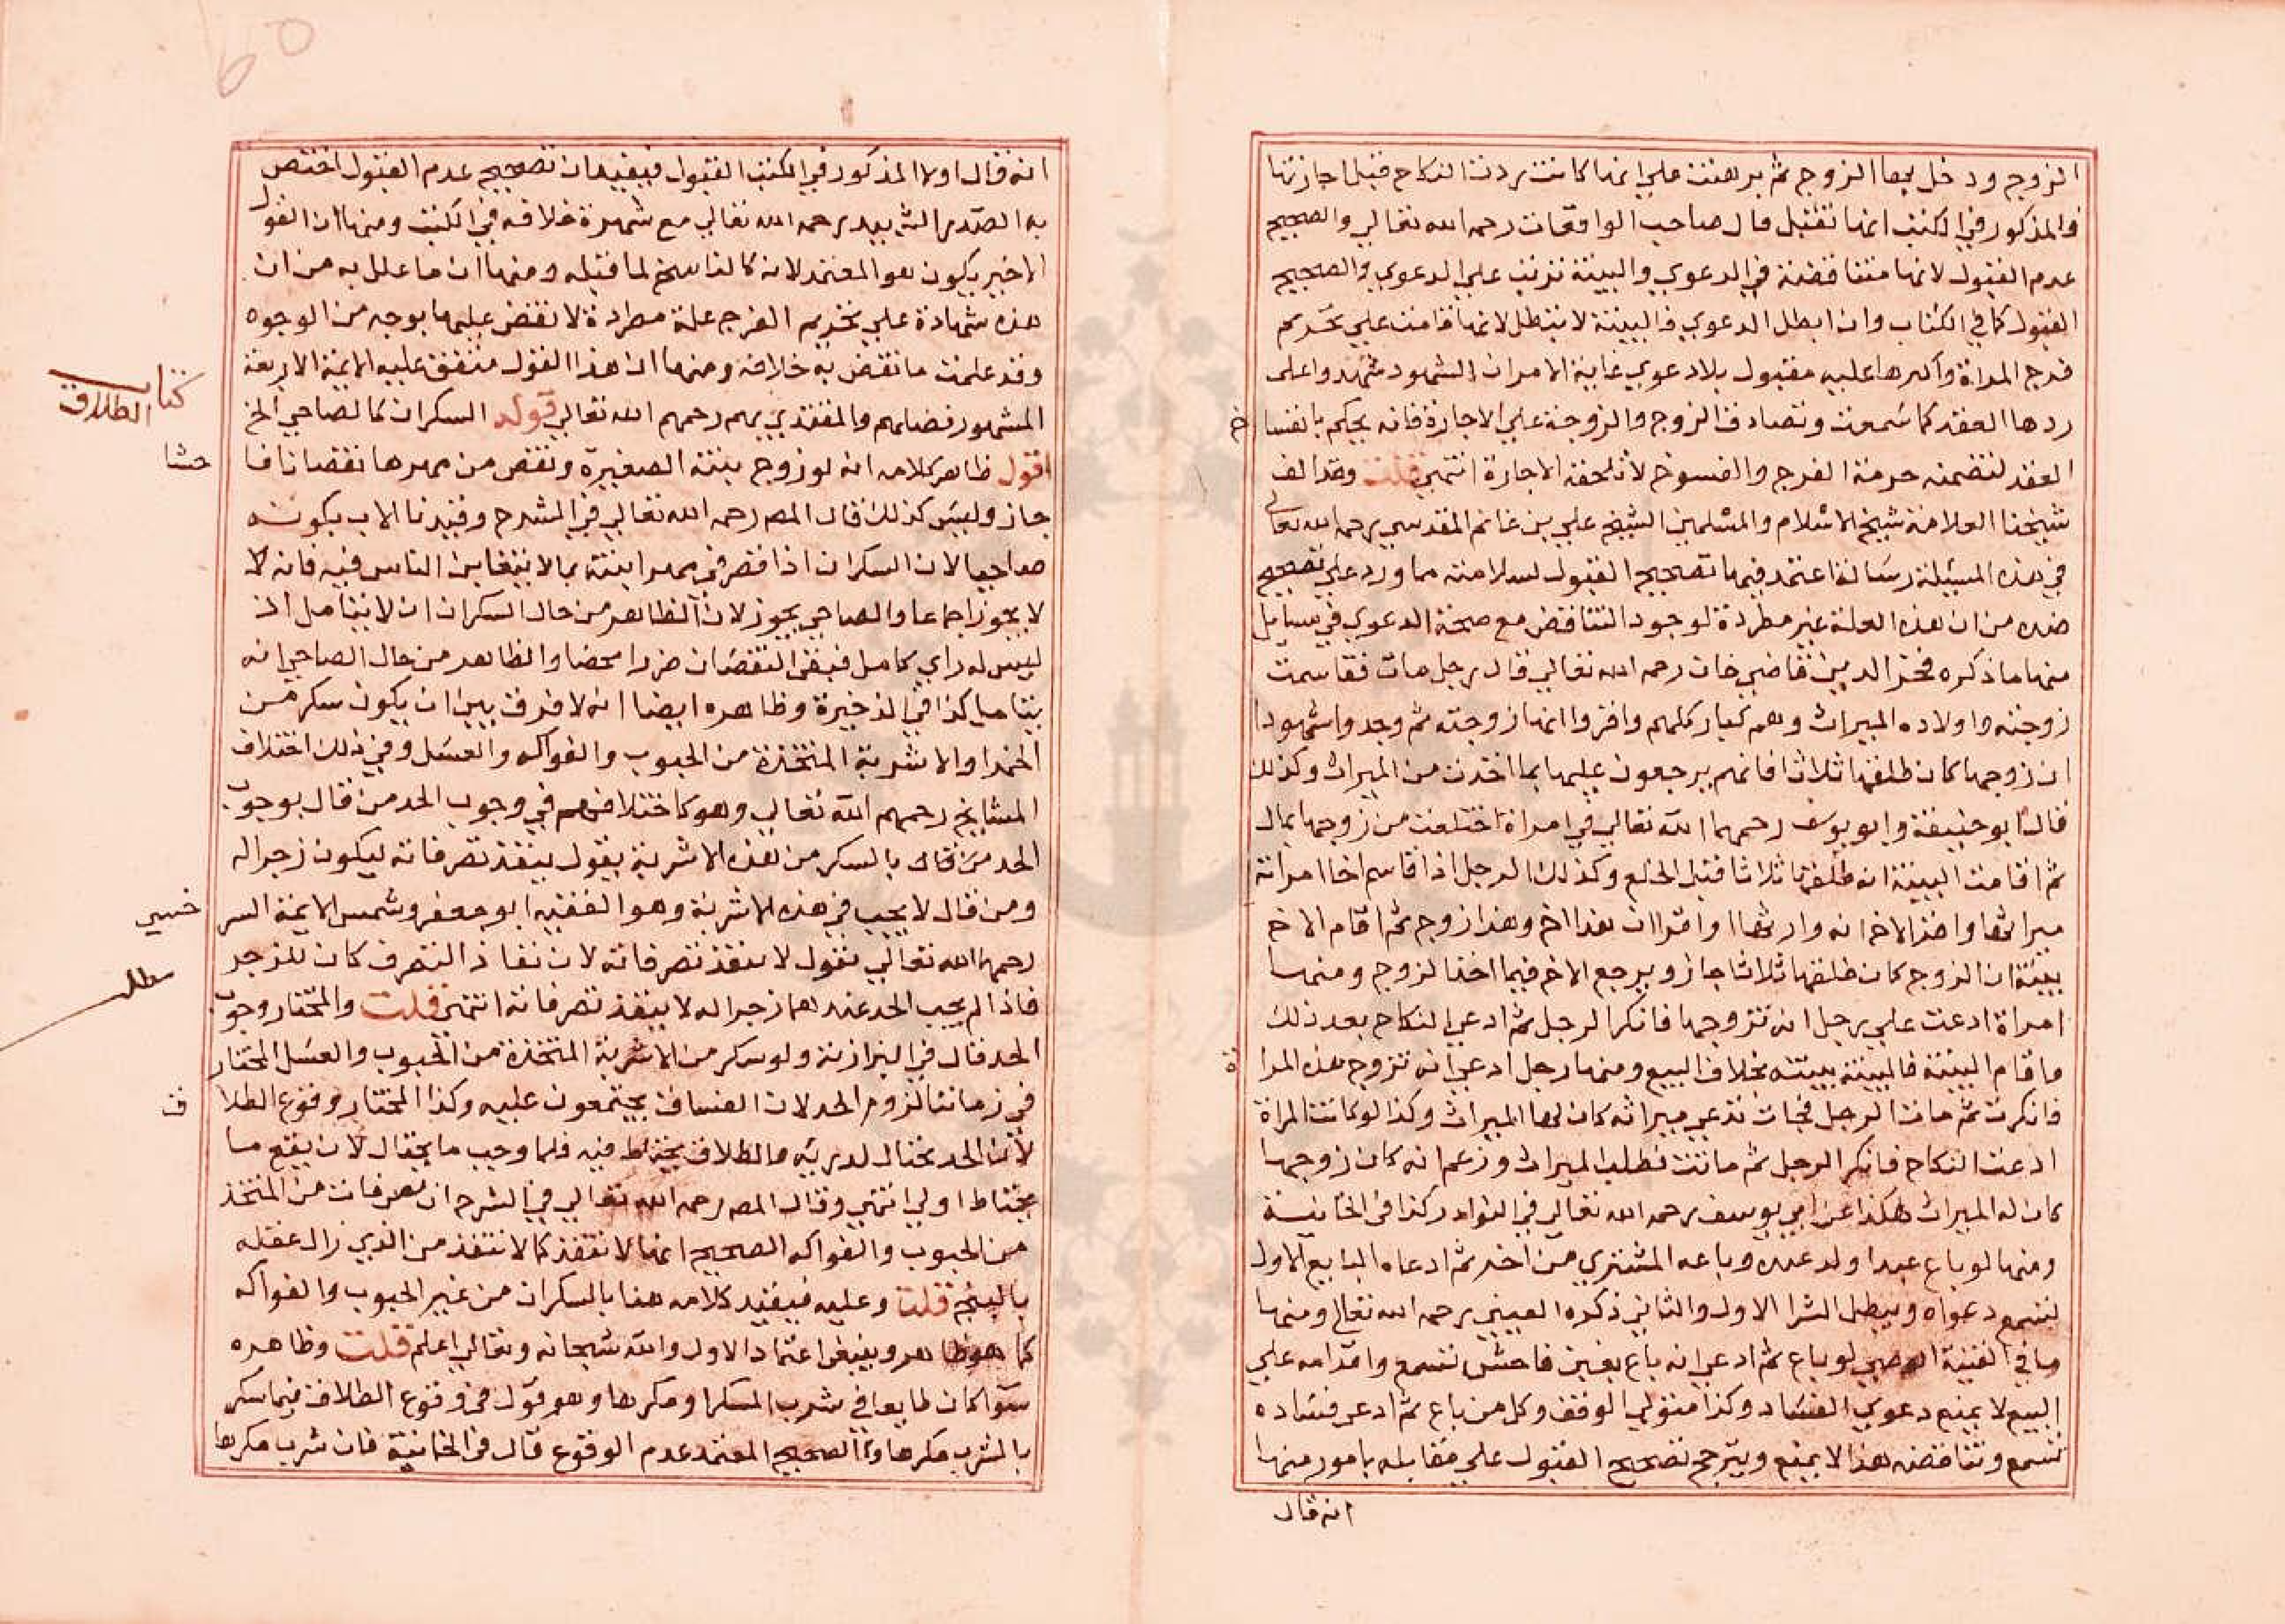 الزوج ودخل بها الزوج ثم برهنت علي انها كانت ردت النكاح قبل اجازتها
فالمذكور في الكتب انها تقبل قال صاحب الواقعات رحمه الله تعالي والصحيح
عدم القبول لانها متناقضة في الدعوي والبينة ترتب علي الدعوي والصحيح
القبول كما في الكتاب وان ابطل الدعوي فالبينة لا تبطل لانها قامت علي تحريم
فرج المراة والبرهان عليه مقبول بلا دعوي غاية الامر ان الشهود شهدوا علي
ردها العقد كما سمعت وتصادف الزوج والزوجة علي الاجازة فانه يحكم بانفسا
خ
العقد لتضمنه حرمة الفرج والفسوخ لا تلحقه الاجازة انتهي قلت وقد الف
شيخنا العلامة شيخ الاسلام والمسلمين الشيخ علي بن غانم المقدسي رحمه الله تعالي
في هذه المسئلة رسالة اعتمد فيها تصحيح القبول لسلامته مما ورد علي تصحيح
ضده من ان هذه العلة غير مطردة لوجود التناقض مع صحة الدعوي في مسايل
منها ما ذكره فخر الدين قاضي خان رحمه الله تعالي قال رجل مات فقاسمت
زوجته واولاده الميراث وهم كبار كلهم واقروا انها زوجته ثم وجدوا شهودا
ان زوجها كان طلقها ثلاثا فانهم يرجعون عليها بما اخذت من الميراث وكذلك
قال ابو حنيفة وابو يوسف رحمهما الله تعالي في امراة اختلعت من زوجها بمال
ثم اقامت البينة انه طلقها ثلاثا قبل الخلع وكذلك الرجل اذا قاسم اخا امراته
ميراثها واخذ الاخ انه وارثها واقرا ان هذا اخ وهذا زوج ثم اقام الاخ
بينة ان الزوج كان طلقها ثلاثا جاز ويرجع الاخ فيما اخذ الزوج ومنها
امراة ادعت علي رجل انه تزوجها فانكر الرجل ثم ادعي النكاح بعد ذلك
واقام البينة فالبينة بينته بخلاف البيع ومنها رجل ادعي انه تزوج هذه المرا
ة
فانكرت ثم مات الرجل فجات تدعي ميراثه كان لها الميراث وكذا لو كانت المراة
ادعت النكاح فانكر الرجل ثم ماتت فطلب الميراث وزعم انه كان زوجها
كان له الميراث هكذا عن ابي يوسف رحمه الله تعالي في النوادر كذا في الخانية
ومنها لو باع عبدا ولد عنده وباعه المشتري من اخر ثم ادعاه البايع الاول
تسمع دعواه ويبطل الشرا الاول والثاني ذكره العيني رحمه الله تعالي ومنها
ما في القنية الوصي لو باع ثم ادعي انه باع بغبن فاحش تسمع واقدامه علي
البيع لا يمنع دعوي الفساد وكذا متولي الوقف وكل من باع ثم ادعي فساده
تسمع وتناقضه هذا لا يمنع ويترجح تصحيح القبول علي مقابله بامور منها
انه قال
انه قال اولا المذكور في الكتب القبول فيفيد ان تصحيح عدم القبول اختص
به الصدر الشهيد رحمه الله تعالي مع شهرة خلافه في الكتب ومنها ان القول
الاخير يكون هو المعتمد لانه كالناسخ لما قبله ومنها ان ما علل به من ان
هذه شهادة علي تحريم الفرج علة مطردة لا نقض عليها بوجه من الوجوه
وقد علمت ما نقض به خلافه ومنها ان هذا القول متفق عليه الايمة الاربعة
المشهور فضلهم والمقتدي بهم رحمهم الله تعالي قوله السكران كالصاحي الخ
كتاب الطلاق
اقول ظاهر كلامه انه لو زوج بنته الصغيرة ونقص من مهرها نقصانا فا
حشا
جاز وليس كذلك قال المص رحمه الله تعالي في الشرح وقيدنا الاب بكونه
صاحيا لان السكران اذا قصر في مهر ابنته بما لا يتغابن الناس فيه فانه لا
لا يجوز اجماعا والصاحي يجوز لان الظاهر من حال السكران ان لا يتامل اذ
ليس له راي كامل فبقي النقصان ضررا محضا والظاهر من حال الصاحي انه
يتامل كذا في الذخيرة وظاهره ايضا انه لا فرق بين ان يكون سكره من
الخمر او الاشربة المتخذة من الحبوب والفواكه والعسل وفي ذلك اختلاف
المشايخ رحمهم الله تعالي وهو كاختلافهم في وجوب الحد من قال بوجوب
الحد من قال بالسكر من هذه الاشربة يقول ينفذ تصرفاته ليكون زجرا له
ومن قال لا يجب في هذه الاشربة وهو الفقيه ابو جعفر وشمس الايمة السر
خسي
رحمهما الله تعالي يقول لا ينفذ تصرفاته لان نفاذ التصرف كان للزجر
فاذا لم يجب الحد عندهما زجرا له لا ينفذ تصرفاته انتهي قلت والمختار وجوب
مطلب
الحد قال في البزازية ولو سكر من الاشربة المتخذة من الحبوب والعسل المختار
في زماننا لزوم الحد لان الفساق يجتمعون عليه وكذا المختار وقوع الطلا
ق
لان الحد يحتال لدريه والطلاق يحتاط فيه فلما وجب ما يحتال لان يقع ما
يحتاط اولي انتهي وقال المص رحمه الله تعالي في الشرح ان تصرفات من المتخذ
من الحبوب والفواكه الصحيح انها لا تنفذ كما لا تنفذ من الذي زال عقله
بالبنج قلت وعليه فيقيد كلامه هنا بالسكران من غير الحبوب والفواكه
كما هو ظاهر وينبغي اعتماد الاول والله سبحانه وتعالي اعلم قلت وظاهره
سوا كان طايعا في شرب المسكر او مكرها وهو قول في وقوع الطلاق فيما سكر
بالشرب مكرها والصحيح المعتمد عدم الوقوع قال في الخانية فان شرب مكرها